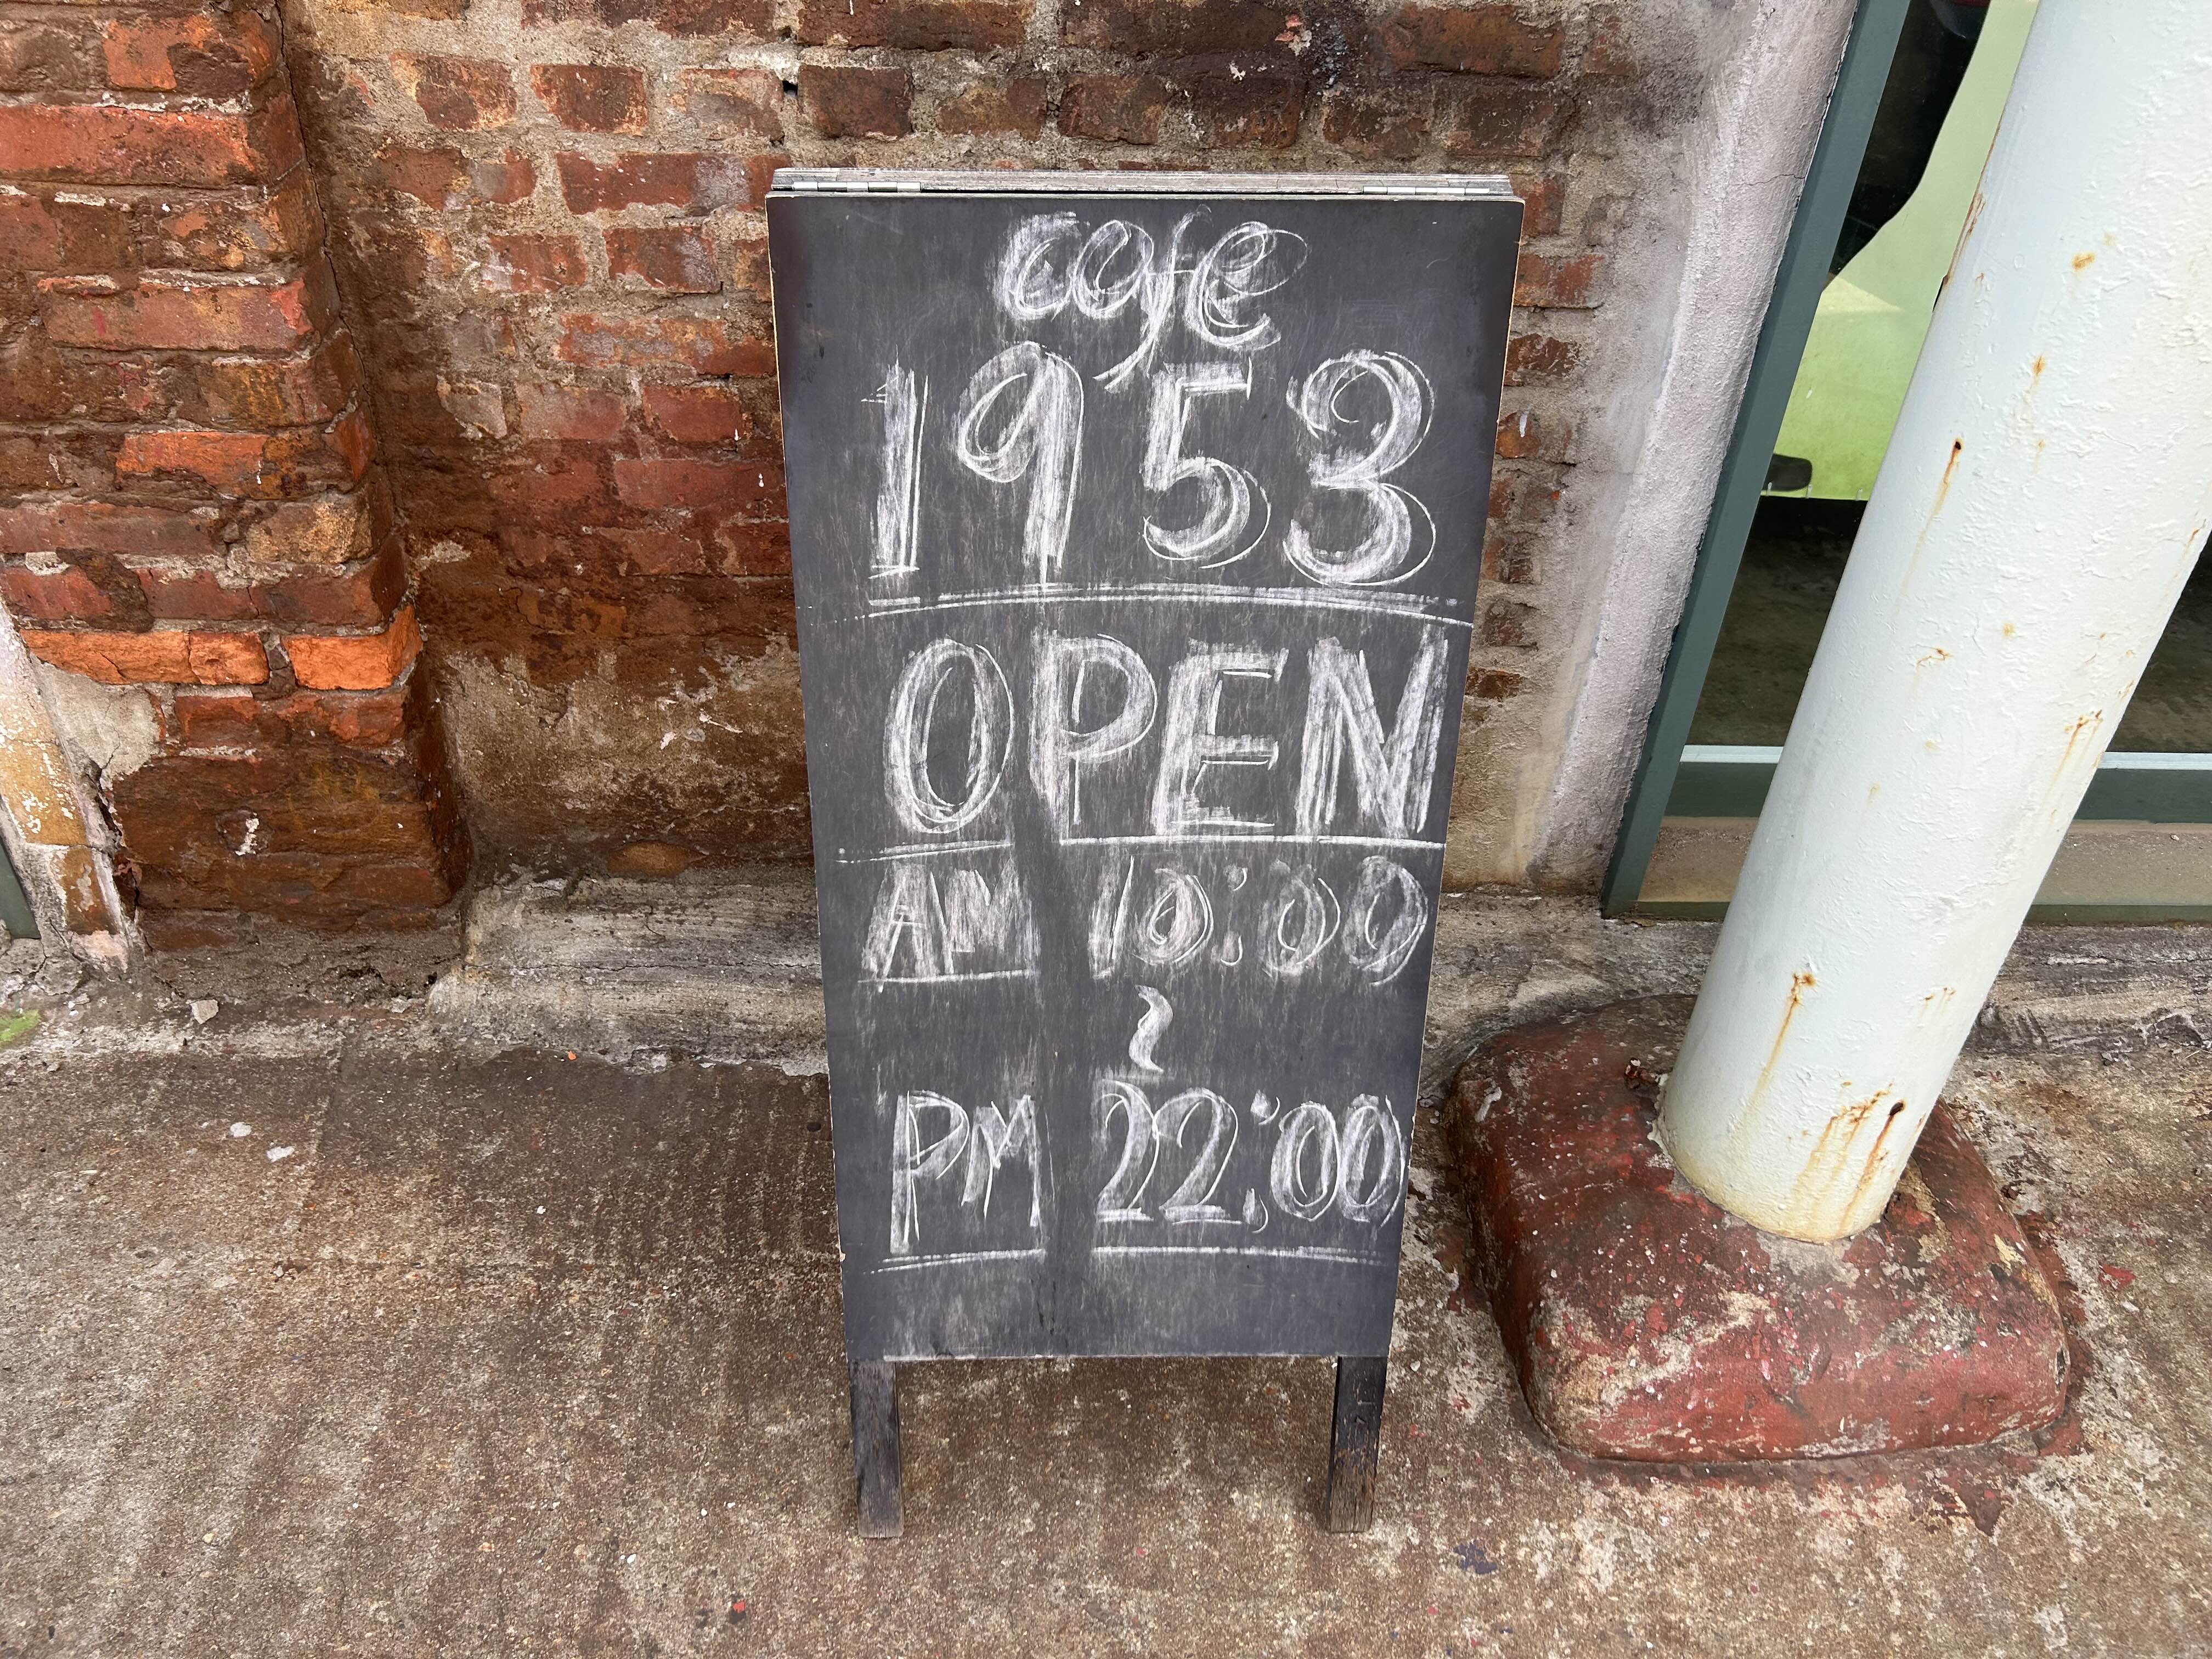 cafe
1953
OPEN
AM 10:00
~
PM 22:00